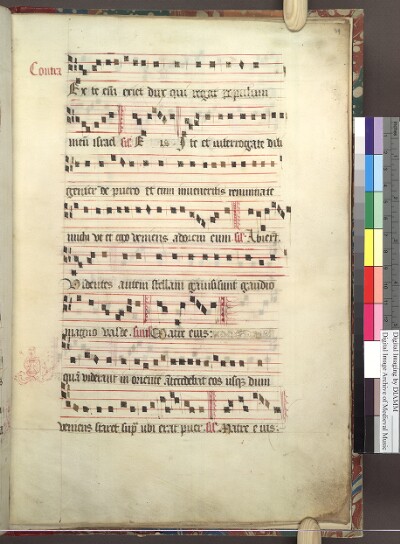 Contra
Ex te eni exiet dux qui regat populum
meu israel sic E is. Ite et interrogate dili
genter de puero et cum inveneritis renuntiate
michi ut et ego veniens adorem eum sic Abier.
Videntes autem stellam gavisi sunt gaudio
magno valde. sunt Matre eius.
quam viderant in oriente Antecedebat eos usque dum
veniens staret supra ubi erat puer. sic Matre eius.
Digital Imaging by DIAMM
Digital Image Archive of Medieval Music